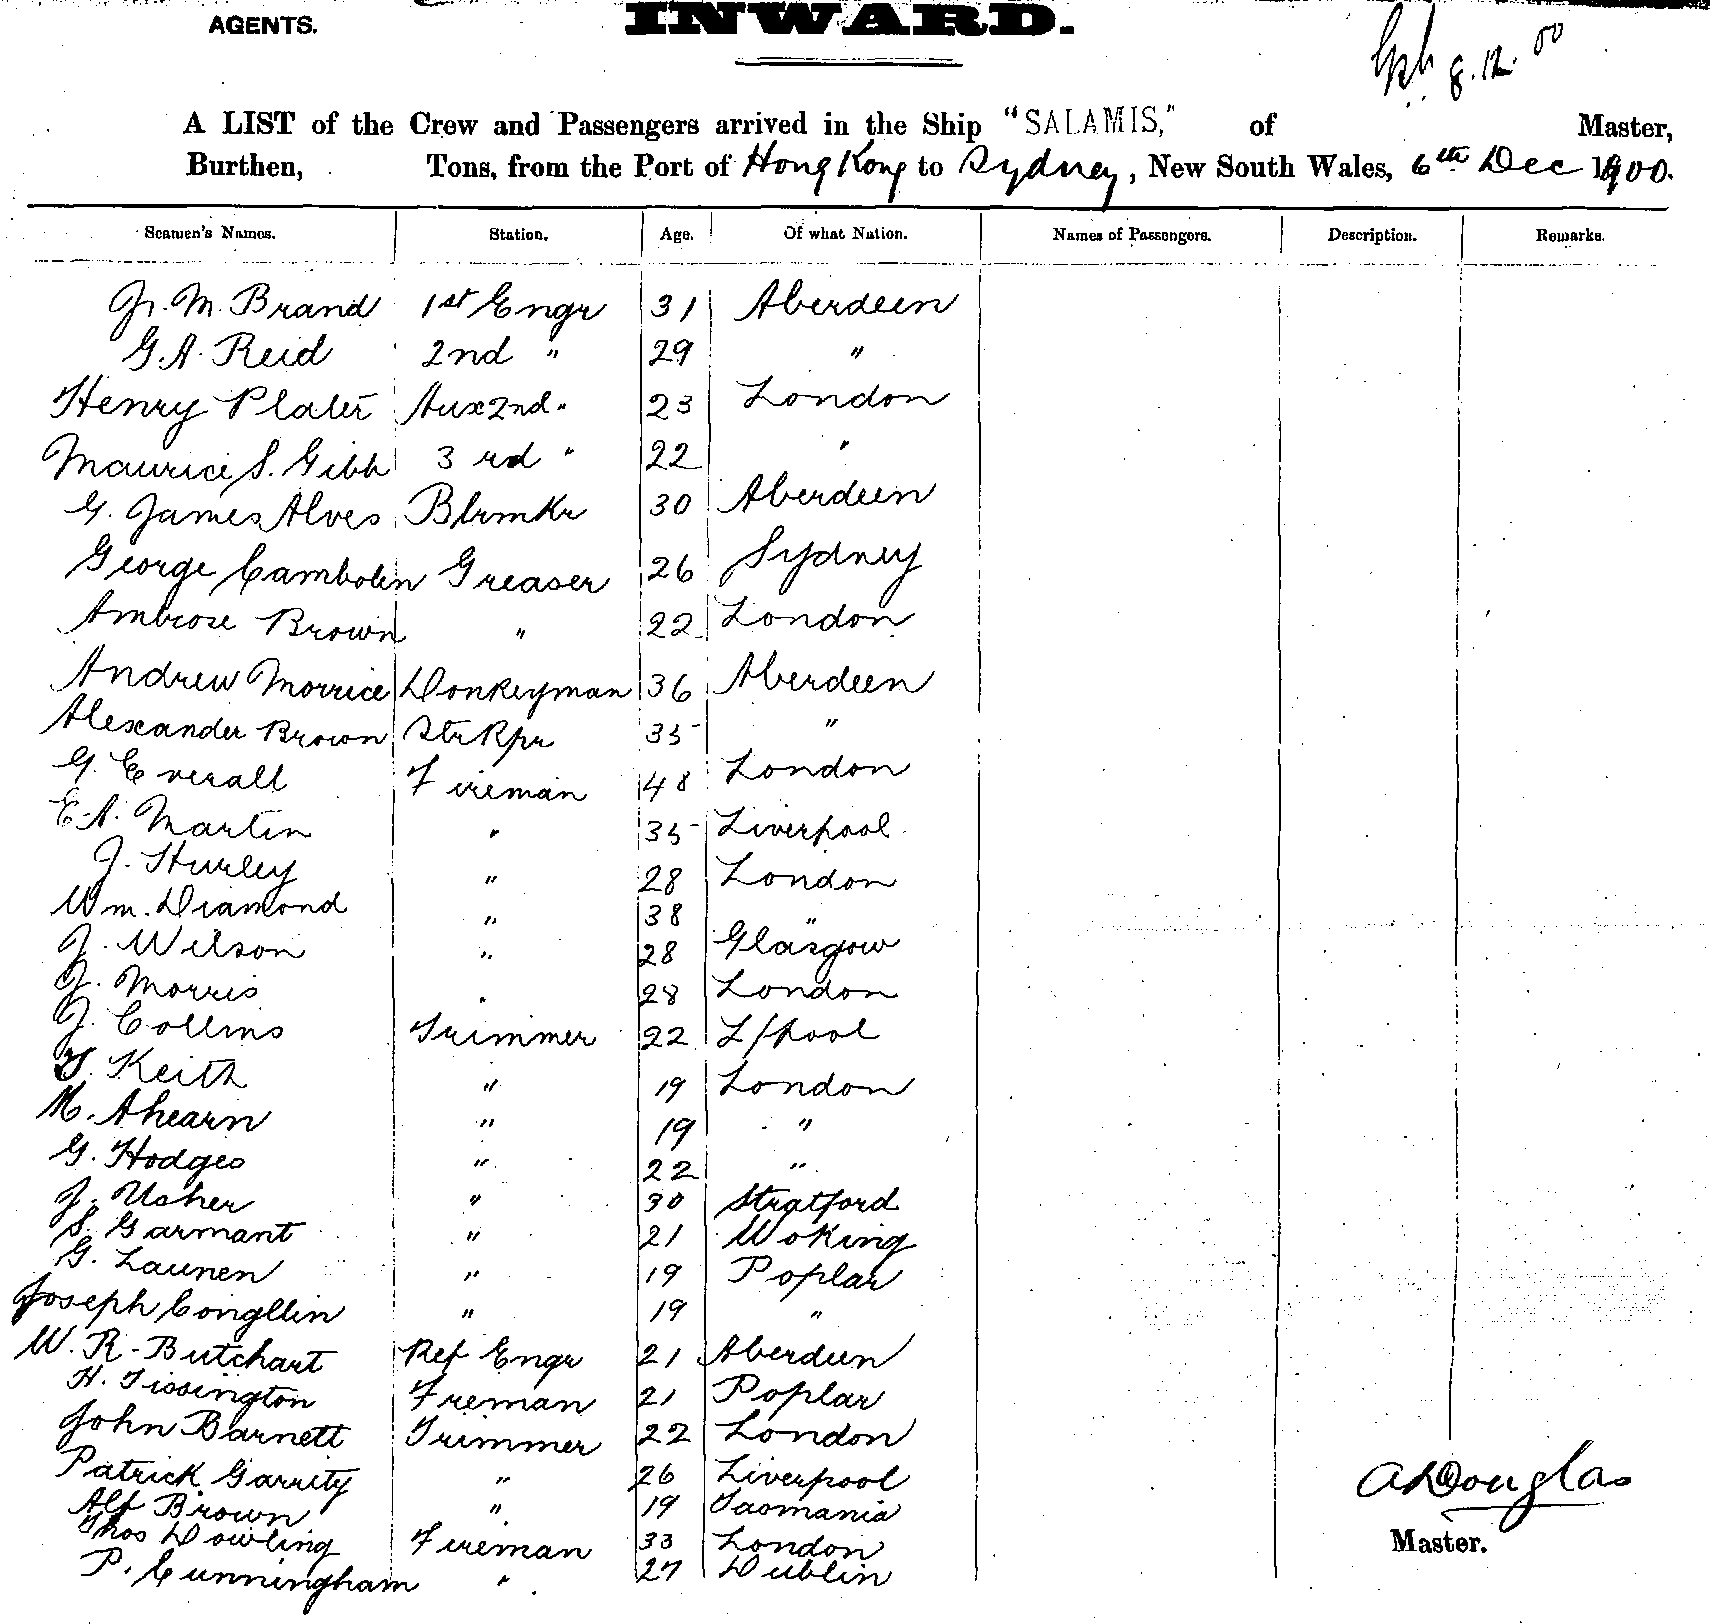 AGENTS.
INWARD.
8.12.00
A LIST of the Crew and Passengers arrived in the Ship "SALAMIS," of Master,
Burthen, Tons, from the Port of Hong Kong to Sydney, New South Wales, 6th Dec 1900.
Seamen's Names. Station. Age. Of what Nation. Names of Passengers. Description. Remarks.
Jr. M. Brand 1st Engr 31 Aberdeen
G. A. Reid 2nd " 29 "
Henry Plater Aux 2nd " 23 London
Maurice S. Gibb 3rd " 22 "
G. James Alves Blrmkr 30 Aberdeen
George Cambolin Greaser 26 Sydney
Ambrose Brown " 22 London
Andrew Morrice Donkeyman 36 Aberdeen
Alexander Brown StrKpr 35 "
G. Everall Fireman 48 London
E. A. Martin " 35 Liverpool
J. Hurley " 28 London
Wm. Diamond " 38 "
J. Wilson " 28 Glasgow
J. Morris " 28 London
J. Collins Trimmer 22 L/pool
Keith " 19 London
M. Ahearn " 19 "
G. Hodges " 22 "
J. Usher " 30 Stratford
S. Garmant " 21 Woking
G. Launen " 19 Poplar
Joseph Congllin " 19 "
W. R. Butchart Ref Engr 21 Aberdeen
H. Tissington Fireman 21 Poplar
John Barnett Trimmer 22 London
Patrick Garrity " 26 Liverpool
Alf Brown " 19 Tasmania
Thos Dowling Fireman 33 London
P. Cunningham " 27 Dublin
A Douglas
Master.